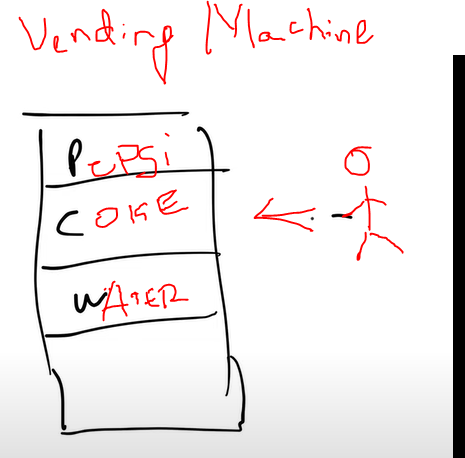 Vending Machine
PEPSi
COKE
WATER